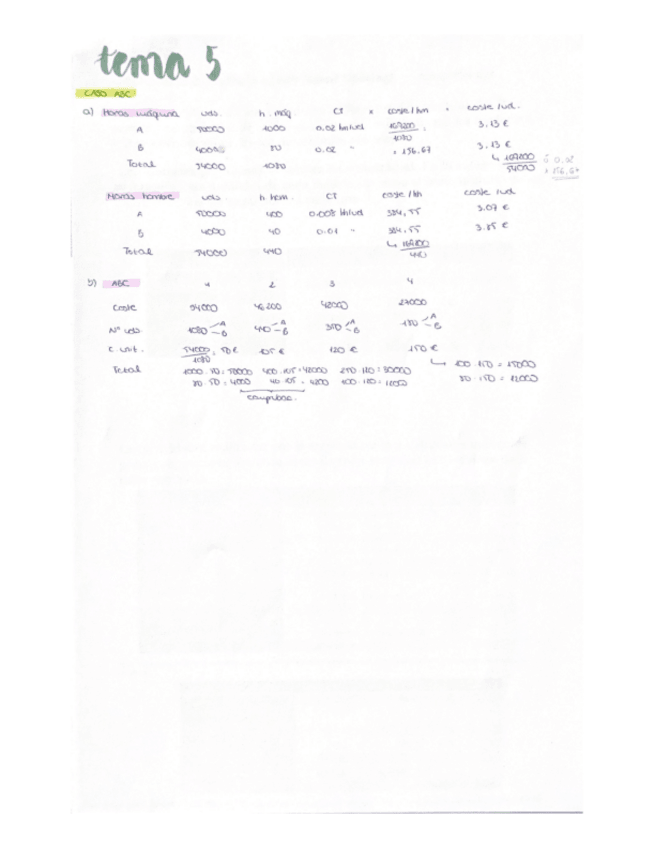 tema 5
CASO ABC
a) Horas máquina uds. h. máq CT x coste/hm = coste/ud.
A 50000 1000 0.02 hm/ud 169200 : 1080 3.13 €
B 4000 80 0.02 " = 156.67 3.13 €
Total 54000 1080 ↳ 169200 / 54000 ó 0.02 · 156.67
Horas hombre uds h hom. CT coste/hh coste/ud
A 50000 400 0.008 hh/ud 384,55 3.07 €
B 4000 40 0.01 " 384.55 3.85 €
Total 54000 440 ↳ 169200 / 440
b) ABC 1 2 3 4
Coste 54000 46200 42000 27000
Nº uds. 1080 A B 440 A B 350 A B 180 A B
C. unit. 54000 / 1080 = 50 € 105 € 120 € 150 €
Total 1000 · 50 = 50000 400 · 105 = 42000 250 · 120 = 30000 ↳ 100 · 150 = 15000
80 · 50 = 4000 40 · 105 = 4200 100 · 120 = 12000 80 · 150 = 12000
comprobac.